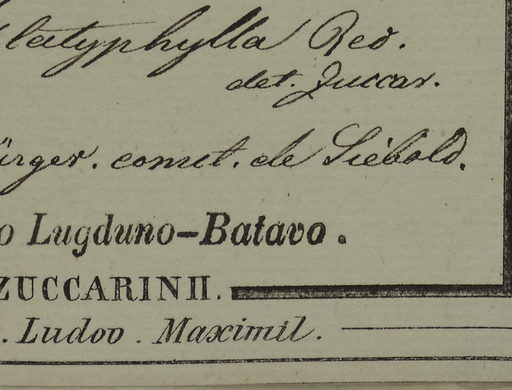 latyphylla Red.
det. Zuccar.
ürger. comt. de Siebold.
o Lugduno-Batavo.
ZUCCARINII.
. Ludov. Maximil.